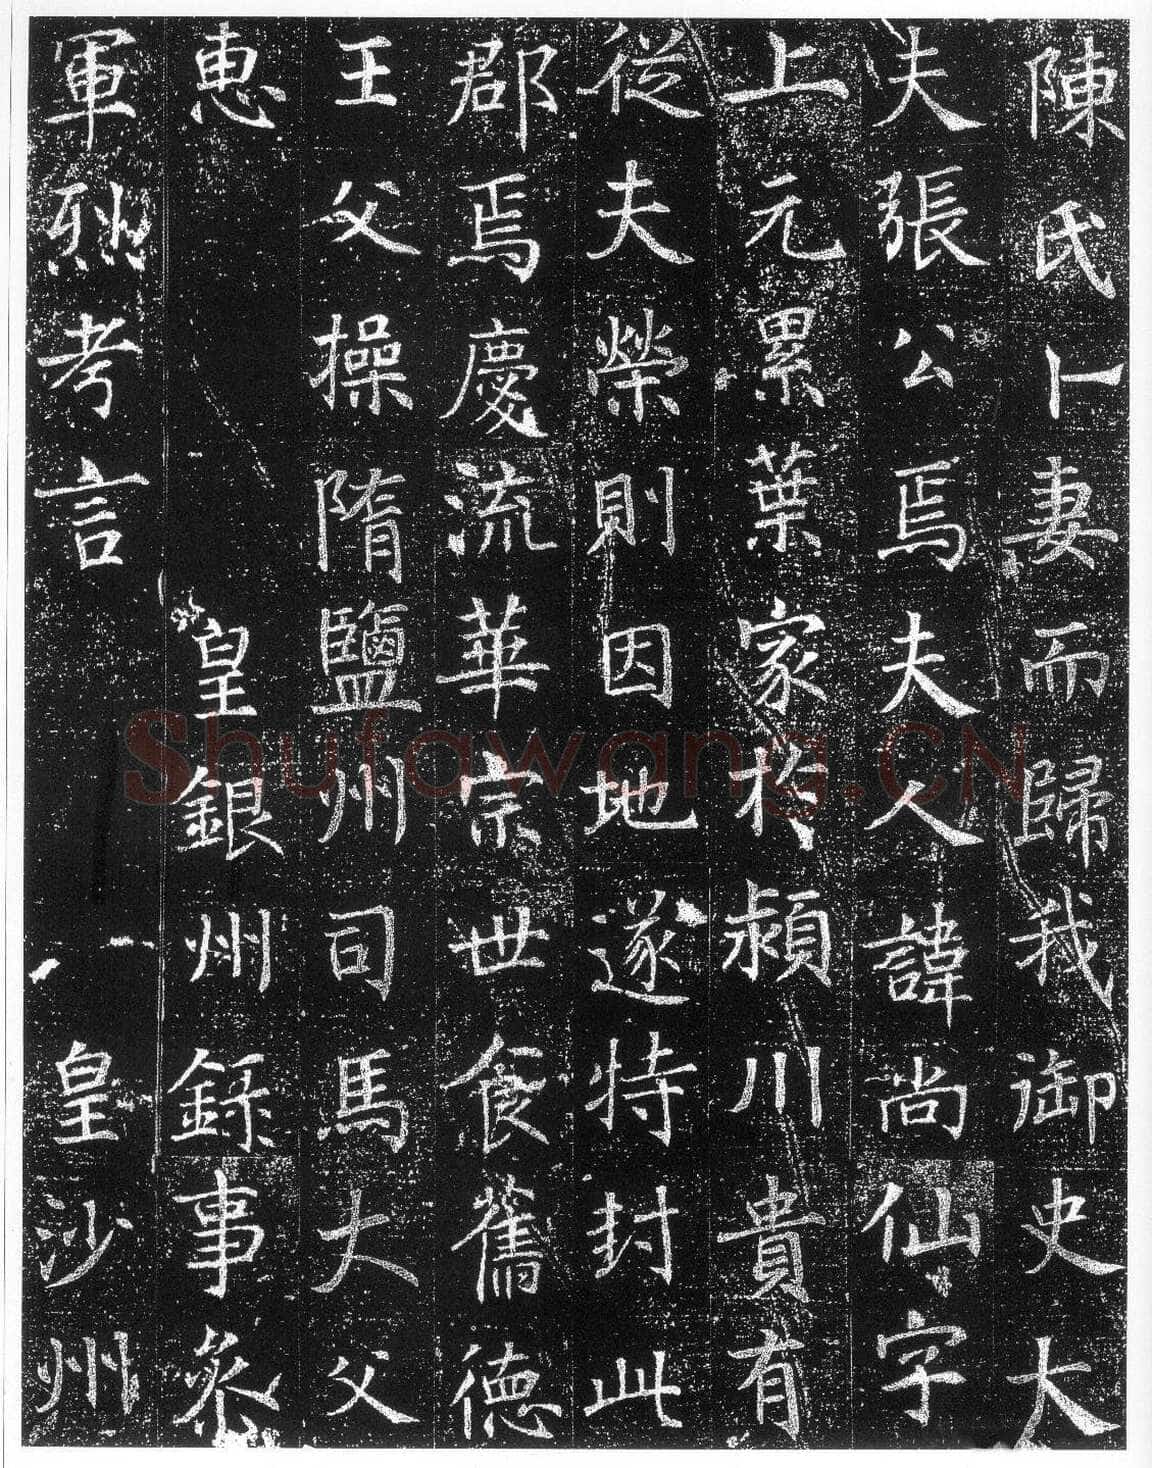 陳氏卜妻而歸我御史大
夫張公焉夫人諱尚仙字
上元累葉家於潁川貴有
從夫榮則因地遂特封此
郡焉慶流華宗世食舊德
王父操隋鹽州司馬大父
惠皇銀州錄事參
軍烈考言皇沙州
Shufawang.CN